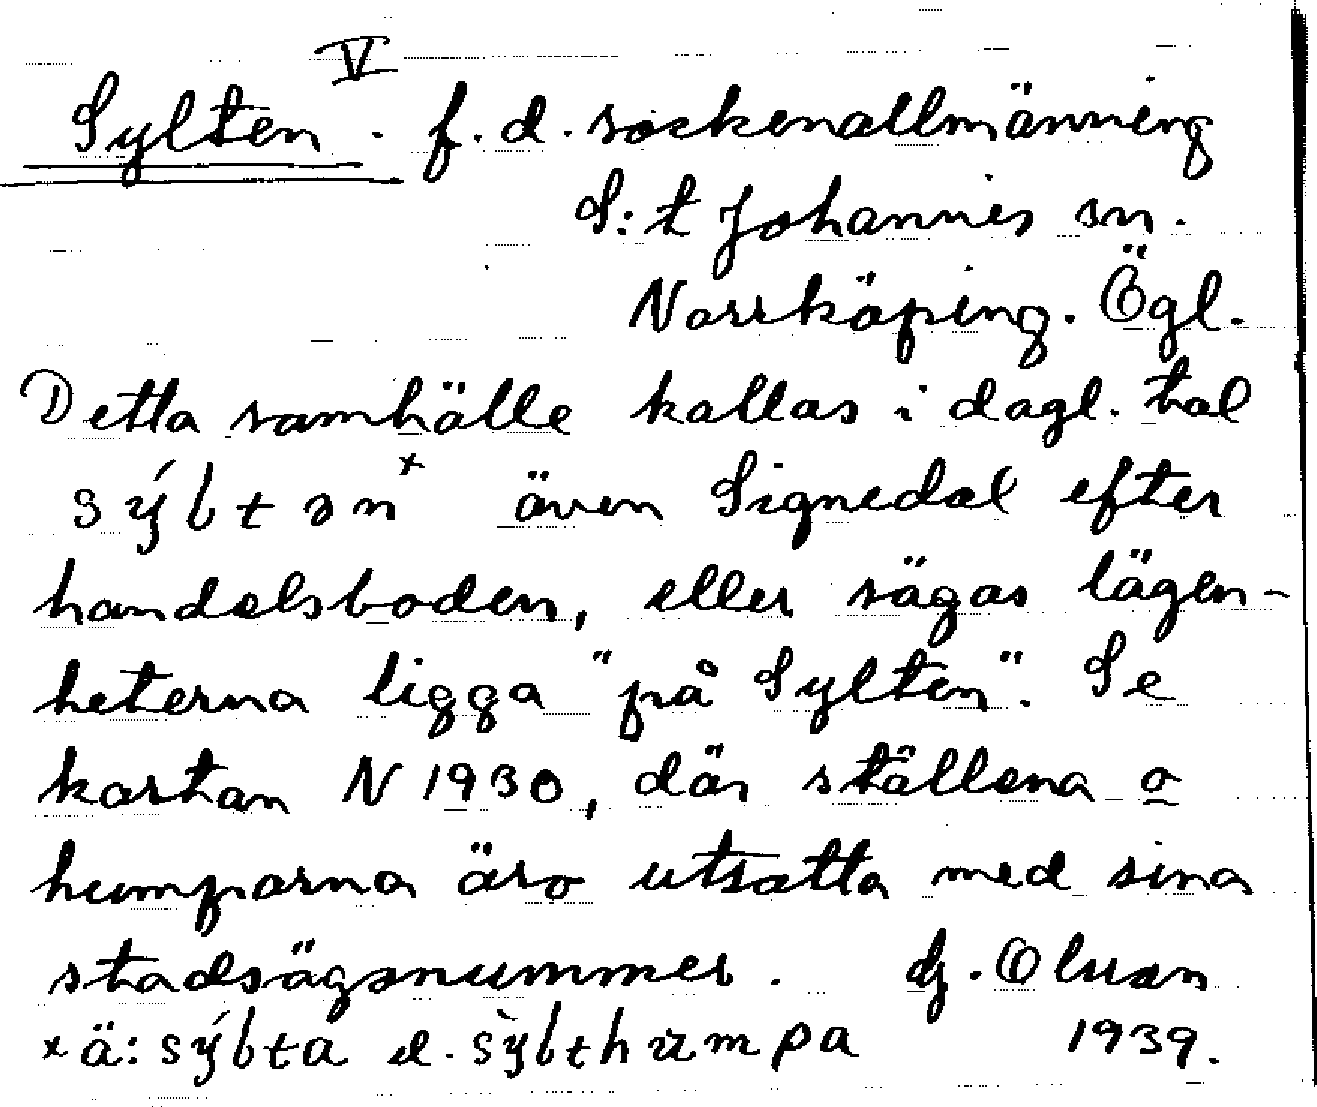 V
Sylten. f. d. sockenallmänning
S:t Johannes sn.
Norrköping. Ögl.
Detta samhälle kallas i dagl. tal
sýltən x även Signedal efter
handelsboden, eller sägas lägen-
heterna ligga "på Sylten". Se
kartan N 1930, där ställena o
humparna äro utsatta med sina
stadsägonummer. Hj. Olsson
x ä: sýlta el. sỳlthumpa 1939.